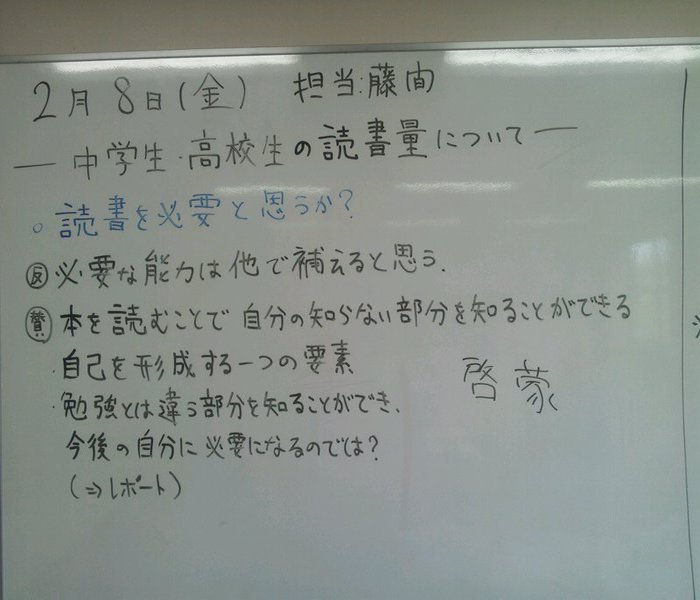 2月8日(金) 担当:藤間
― 中学生・高校生の読書量について ―
○読書を必要と思うか?
反 必要な能力は他で補えると思う.
賛 本を読むことで自分の知らない部分を知ることができる
・自己を形成する一つの要素
・勉強とは違う部分を知ることができ、
今後の自分に必要になるのでは?
(⇒レポート)
啓蒙